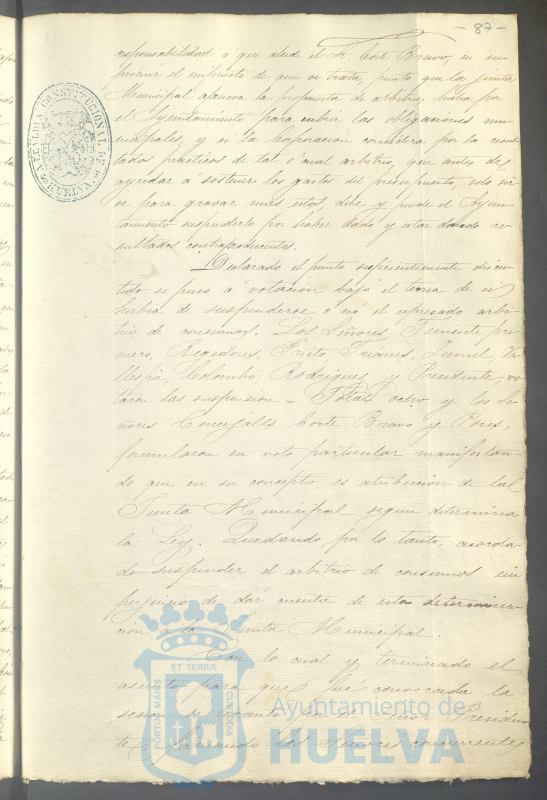 - 87 -
responsabilidad á que alude el Sr. Corte Bravo, en su-
primir el impuesto de que se trata, puesto que la Junta
Municipal aprueva la propuesta de arbitrios hecha por
el Ayuntamiento para cubrir las obligaciones mu-
nicipales, y si la Corporacion considera por los resul-
tados practicos de tal ó cual arbitrio, que antes de
ayudar á sostener los gastos del presupuesto, solo sir-
ve para gravar mas estos, debe y puede el Ayun-
tamiento suspenderlo por haber dado y estar dando re-
sultados contraproducentes.
Declarado el punto suficientemente discu-
tido se puso á votacion bajo el tema de si
habia de suspenderse ó nó el expresado arbi-
trio de consumos. Los Señores Teniente pri-
mero, Regidores, Prieto, Suarez,
Colombo, Rodriguez y Presidente, vo-
taron la suspension - Total ocho y los Se-
ñores Concejales Corte Bravo y
formularon su voto particular manifestan-
do que en su concepto, es atribucion de la
Junta Municipal segun determina
la Ley. Quedando por lo tanto, acorda-
do suspender el arbitrio de consumos sin
perjuicio de dar cuenta de esta determina-
cion á la Junta Municipal.
Con lo cual y terminado el
asunto para que fué convocada la
sesion se levantó por el Señor Presiden-
te, firmando los Señores concurrentes
ALCALDIA CONSTITUCIONAL DE HUELVA
PORTUS MARIS ET TERRÆ CUSTODIA
Ayuntamiento de
HUELVA